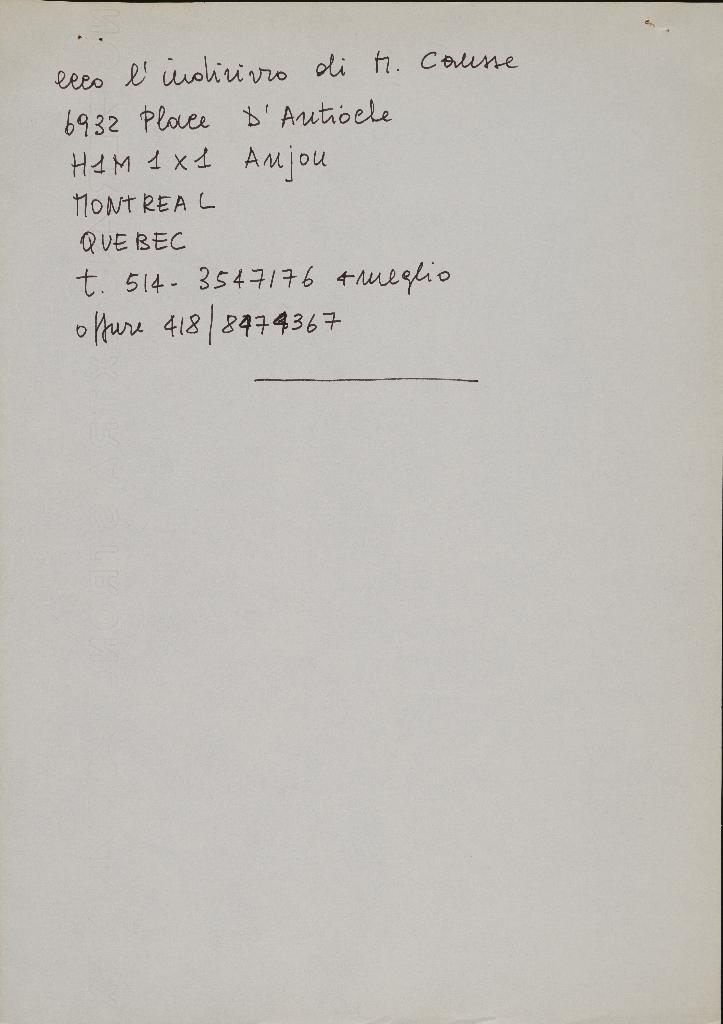 ecco l'indirizzo di M. Causse
6932 Place D'Antioche
H1M 1X1 Anjou
MONTREAL
QUEBEC
t. 514-3547176 + meglio
oppure 418/8474367